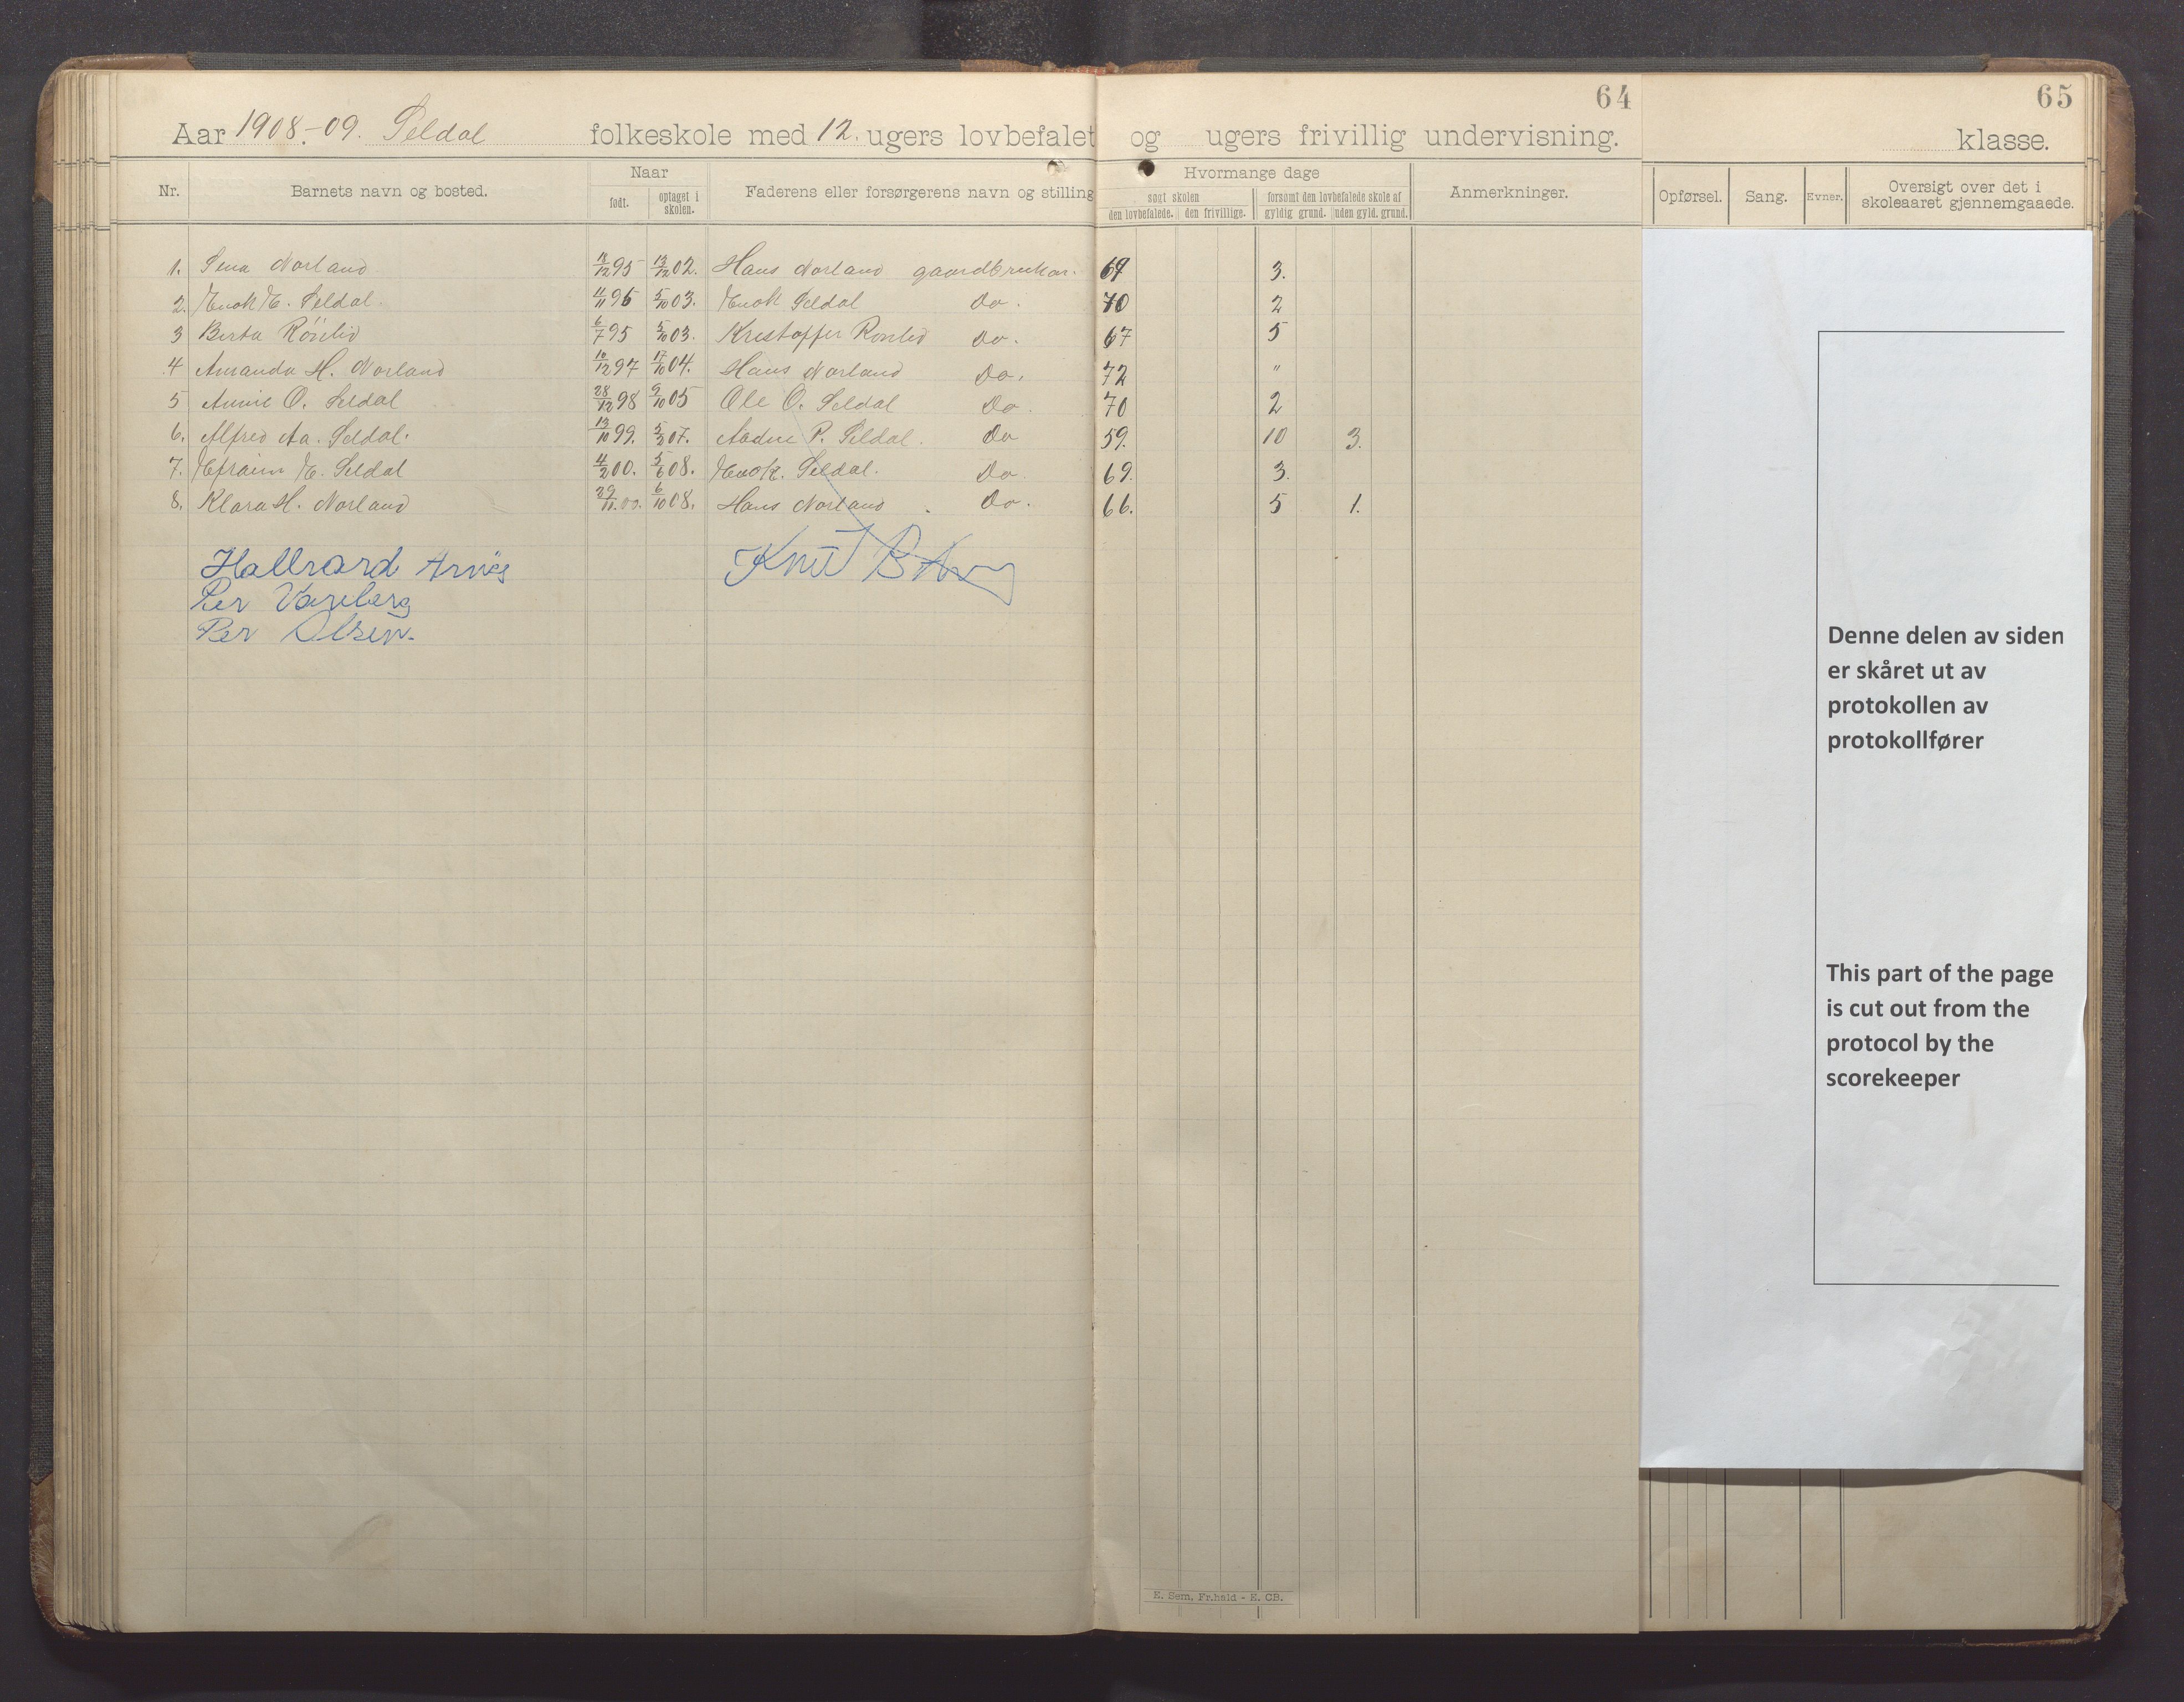 64
65
Aar 1908-09. Seldal folkeskole med 12. ugers lovbefalet og ugers frivillig undervisning. klasse.
Nr. Barnets navn og bosted. Naar født. optaget i skolen. Faderens eller forsørgerens navn og stilling Hvormange dage søgt skolen den lovbefalede. den frivillige. forsømt den lovbefalede skole af gyldig grund. uden gyld. grund. Anmerkninger. Opførsel. Sang. Evner. Oversigt over det i skoleaaret gjennemgaaede.
1. Sena Norland 95 13/12 02. Hans Norland gaardbruker. 69 3.
2. Enok E. Seldal. 5/10 03. Enok Seldal Do. 70 2
3 Berta Röslid 6/7 95 5/10 03. Kristoffer Roslid Do. 67 5
4 Amanda H. Norland 10/12 97 17/10 04. Hans Norland Do. 72 "
5 Annie O. Seldal 28/12 98 9/10 05 Ole O. Seldal Do. 70 2
6. Alfred Aa. Seldal. 13/10 99. 07. Aadne P. Seldal. Do 59. 10 3.
7. Efraim E. Seldal 4/2 00. 08. Enok. Seldal. Do 69. 3.
8. Klara H. Norland 29/11 00. 6/10 08. Hans Norland Do. 66. 5 1.
Hallvard
Knut
Per Vareberg
Per Olsen.
Denne delen av siden
er skåret ut av
protokollen av
protokollfører
This part of the page
is cut out from the
protocol by the
scorekeeper
E. Sem, Fr.hald - E. CB.